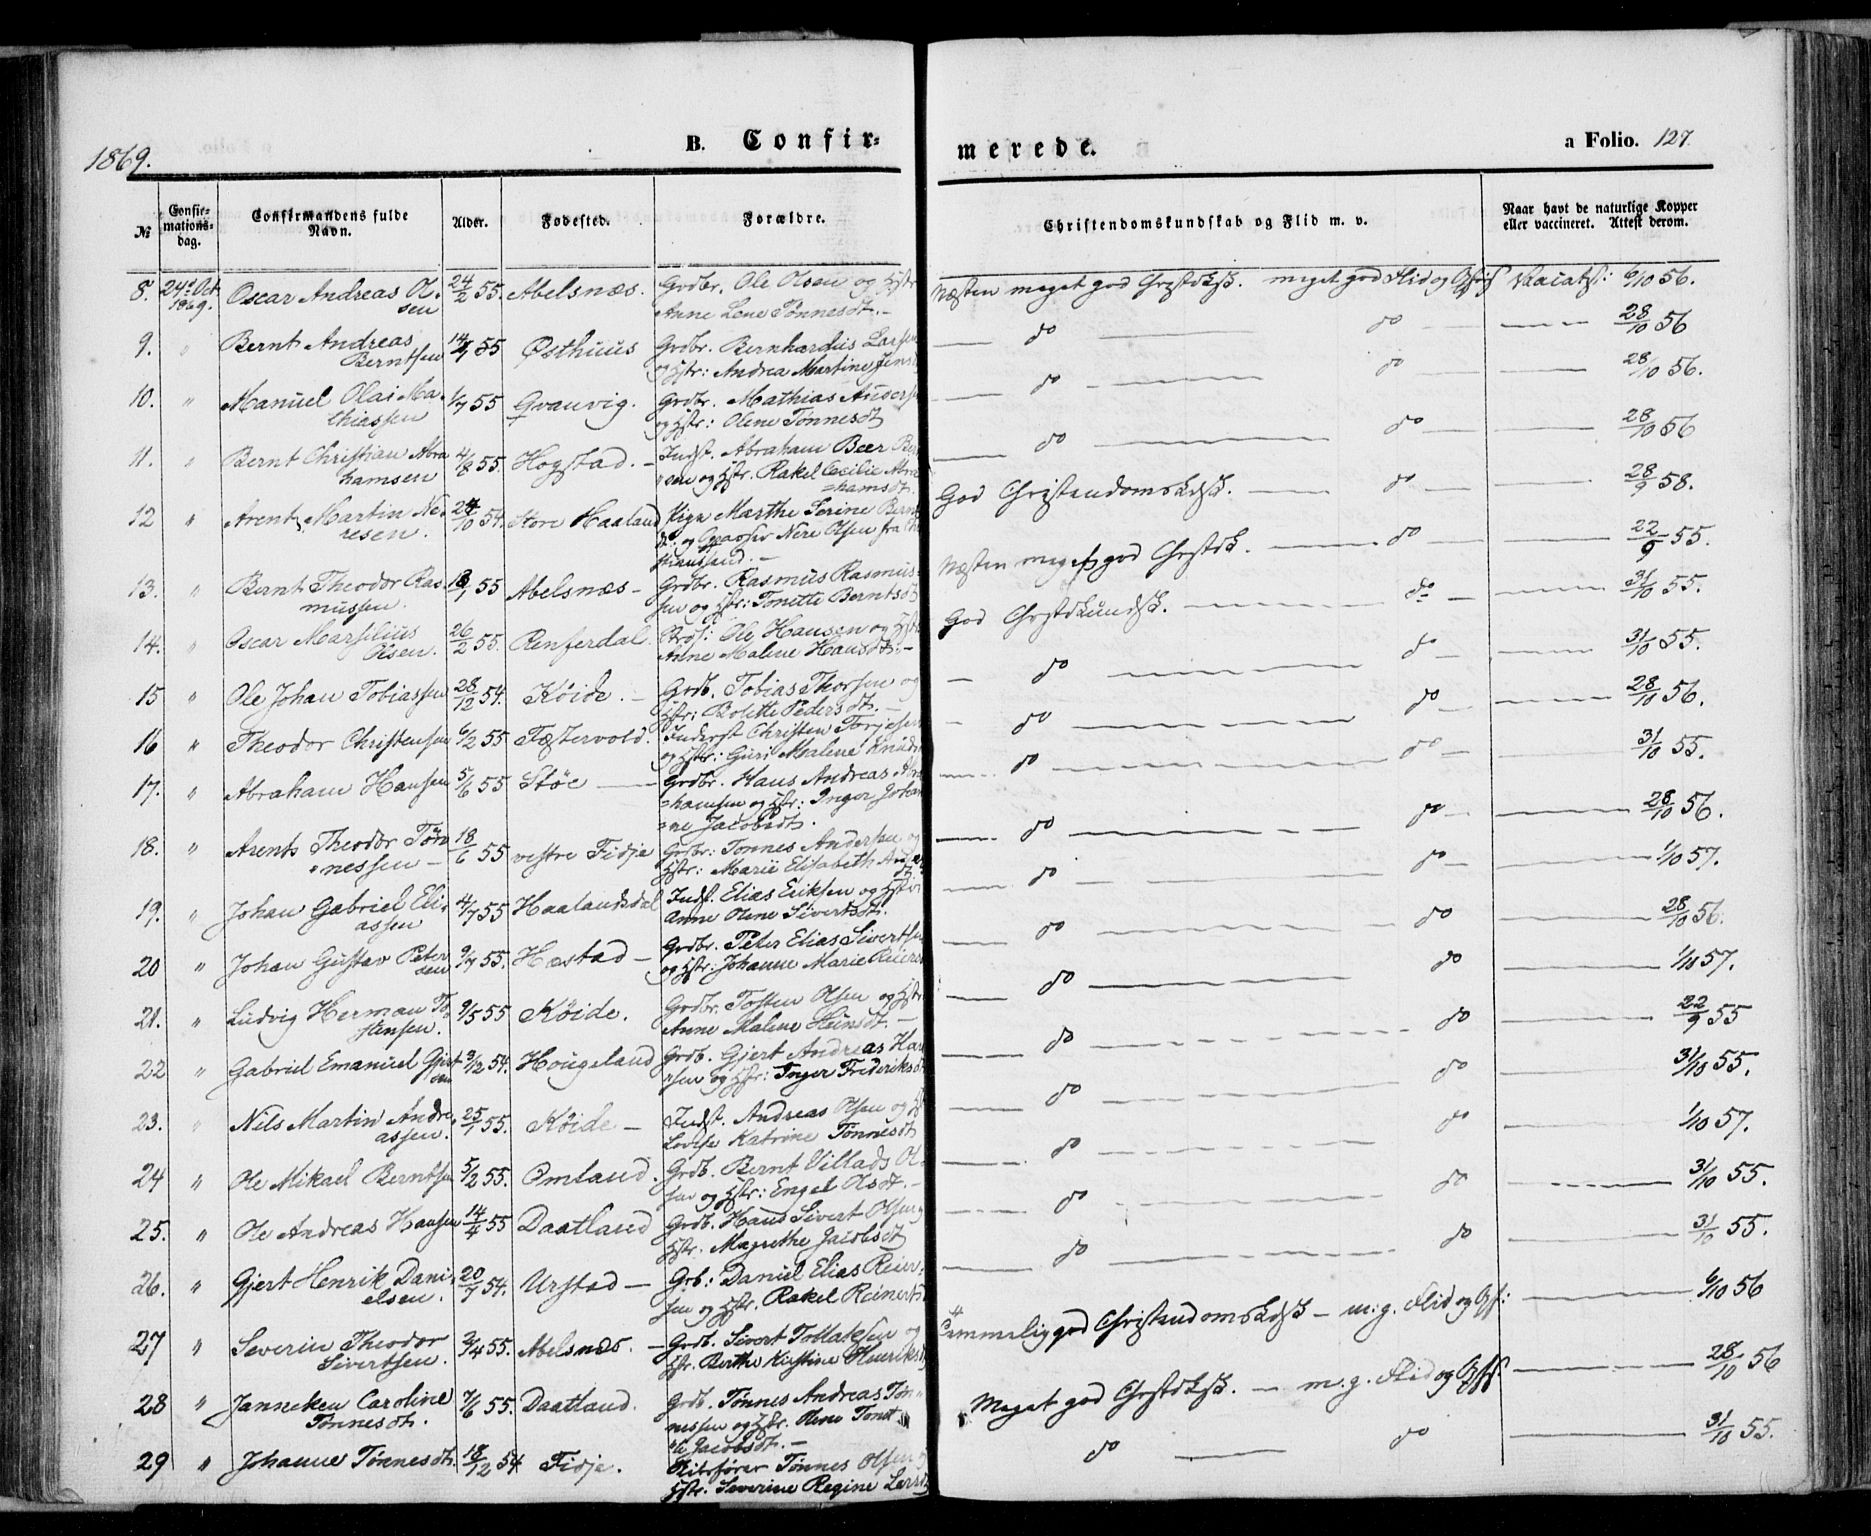 1869.
B. Confir-
merede.
a Folio. 127.
№
Confir-
mations-
dag.
Confirmandens fulde
Navn.
Alder.
Fødested.
Forældre.
Christendomskundskab og Flid m. v.
Naar havt de naturlige Kopper
eller vaccineret. Attest derom.
8. 24de Oct. 1869. Oscar Andreas Ol-
sen 24/2 55. Abelsnæs. Grdbr. Ole Olsen og Hstr
Anne Lene Tønnesdt. -
Næsten meget god Chrstdksk. meget god Flid og 6/10 56.
9. " Bernt Andreas
Berntsen 55 Østhuus Grdbr. Bernhardus Larsen
og Hstr: Andrea Martine
do do 28/10 56
10. " Manuel Olai Ma-
thiassen 1/7 55 Qvanvig. Grdbr. Mathias
og Hstr: Olene Tønnesdt
do do 28/10 56.
11. " Bernt Christian Abra
hamsen 4/8 55. Hogstad. - Indst. Abraham Beer
sen og Hstr. Rakel Cecilie Abra
=hamsdt.
do do 28/10 56
12 " Arent Martin Ne-
resen. 54. Store Haaland Pige Marthe Serine
og Nere Olsen fra
God Christendomsksk. do 28/9 58.
13. " Bernt Theodor Ras-
mussen. 55 Abelsnæs - Grdbr. Rasmus Rasmus-
sen og Hstr: Tonette Berntsdt
Næsten meget god Chrstdk. do 22/9 55.
14. " Oscar Marselius
Olsen. 26/2 55. Renferdal. Ole Hansen og Hstr
Anne Malene Hansdt. -
God Chrstdkundsk. do 31/10 55.
15 " Ole Johan Tobiassen 28/12 54. Kòide. - Grdb. Tobias Thorsen og
Hstr: Bolette Pedersdt. -
do do 31/10 55.
16 " Theodor Christensen 6/2 55 Fæstervold. Inderst Christen Torjesen
og Hstr: Guri Malene
do do 28/10 56.
17. " Abraham Hansen 5/6 55 Støe Grdbr. Hans Andreas
=hamsen og Hstr: Inger
=ne Jacobsdt.
do do 31/10 55.
18. " Arents Theodor Tøn
nessen - 18/6 55 vestre Fidje Grdbr: Tønnes Andersen og
Hstr: Marie Elisabeth
do do 28/10 56.
19. " Johan Gabriel Eli-
assen 4/7 55 Haalandsdal Indst. Elias Eriksen og Hstr:
Anne Olene Sivertsdt.
do do 1/10 57.
20 " Johan Gustav Peter
sen 9/7 55. Hæstad - Grdbr. Peter Elias Sivertsen
og Hstr: Johanne Marie
do do 28/10 56.
21. " Ludvig Herman To-
stensen. 9/5 55 Køide. Grdbr Tosten Olsen og Hstr
Anne Malene
do do 1/10 57.
22 " Gabriel Emanuel Gjert
sen 3/12 54. Hougeland Grdb. Gjert Andreas Han
sen og Hstr: Inger Frederiksdt
do do 22/9 55
23. " Nils Martin Andre-
assen. 25/1 55. Køide - Indst. Andreas Olsen og
Lovise Katrine Tønnesdt
do do 31/10 55.
24 " Ole Mikael Berntsen 5/2 55. Omland. Grdb. Bernt Villads Ol-
sen og Hstr: Engel Olsdt. -
do do 1/10 57.
25. " Ole Andreas Hansen 14/4 55 Daatland Grdb. Hans Sivert Olsen og
Hstr. Magrethe Jacobsdt
do do 31/10 55.
26. " Gjert Henrik Dani-
elsen. 20/7 54. Urstad - Grb: Daniel Elias Reier-
sen og Hstr. Rakel
do do 31/10 55.
27 " Severin Theodor
Sivertsen. 2/4 55. Abelsnæs. - Grdb. Sivert Tollaksen og
Hstr. Berthe Kirstine
Temmelig god Christendomsksk - m. g. Flid og 6/10 56
28 " Janneken Caroline
Tønnesdt. 7/6 55. Daatland. Grdb. Tønnes Andreas Tøn-
nessen og Hstr. Olene
Jacobsdt. -
Meget god Chrstdksk. - m. g. Flid og 28/10 56
29 " Johanne Tønnesdt. 18/12 54 Fidje. Tønnes Olsen og
Hstr. Severine Regine
do do 31/10 55.